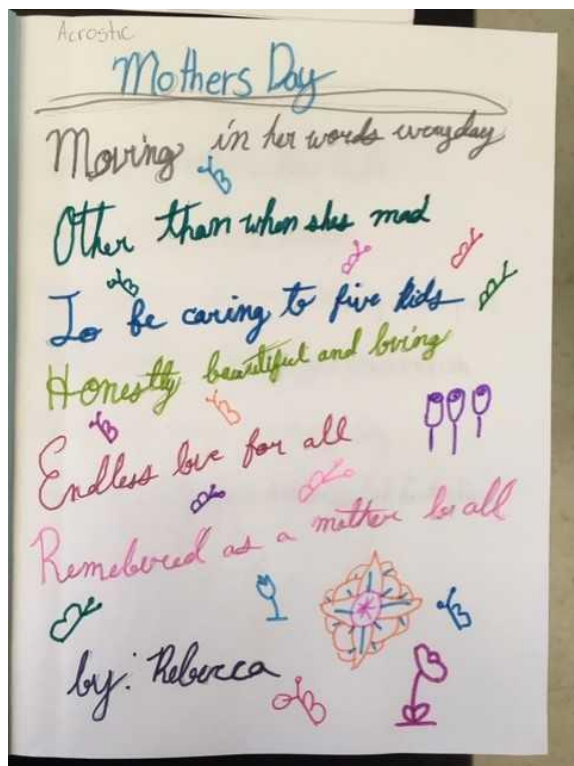 Acrostic
Mothers Day
Moving in her words everyday
Other than when shes mad
To be caring to five kids
Honestly beautiful and loving
Endless love for all
Remebered as a mother to all
by: Rebecca